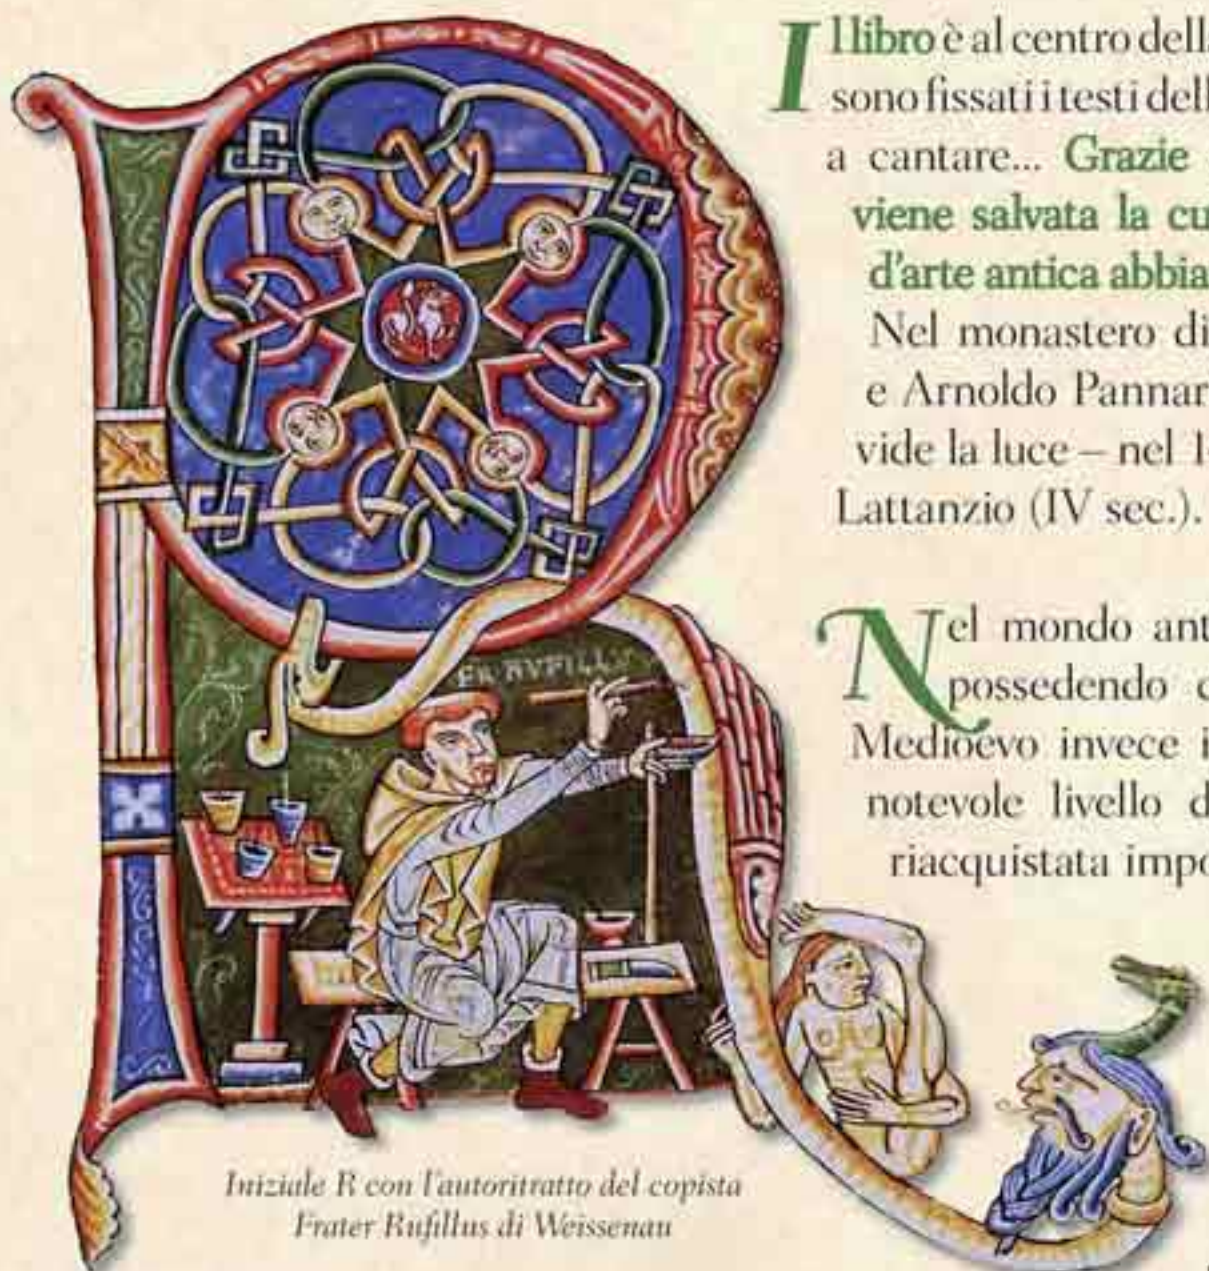 Il libro è al centro della
sono fissati i testi dell
a cantare... Grazie
viene salvata la cu
d'arte antica abbia
Nel monastero di
e Arnoldo Pannar
vide la luce – nel 1
Lattanzio (IV sec.).
Nel mondo ant
possedendo c
Medioevo invece i
notevole livello d
riacquistata impo
FR RVFILLVS
Iniziale R con l'autoritratto del copista
Frater Rufillus di Weissenau